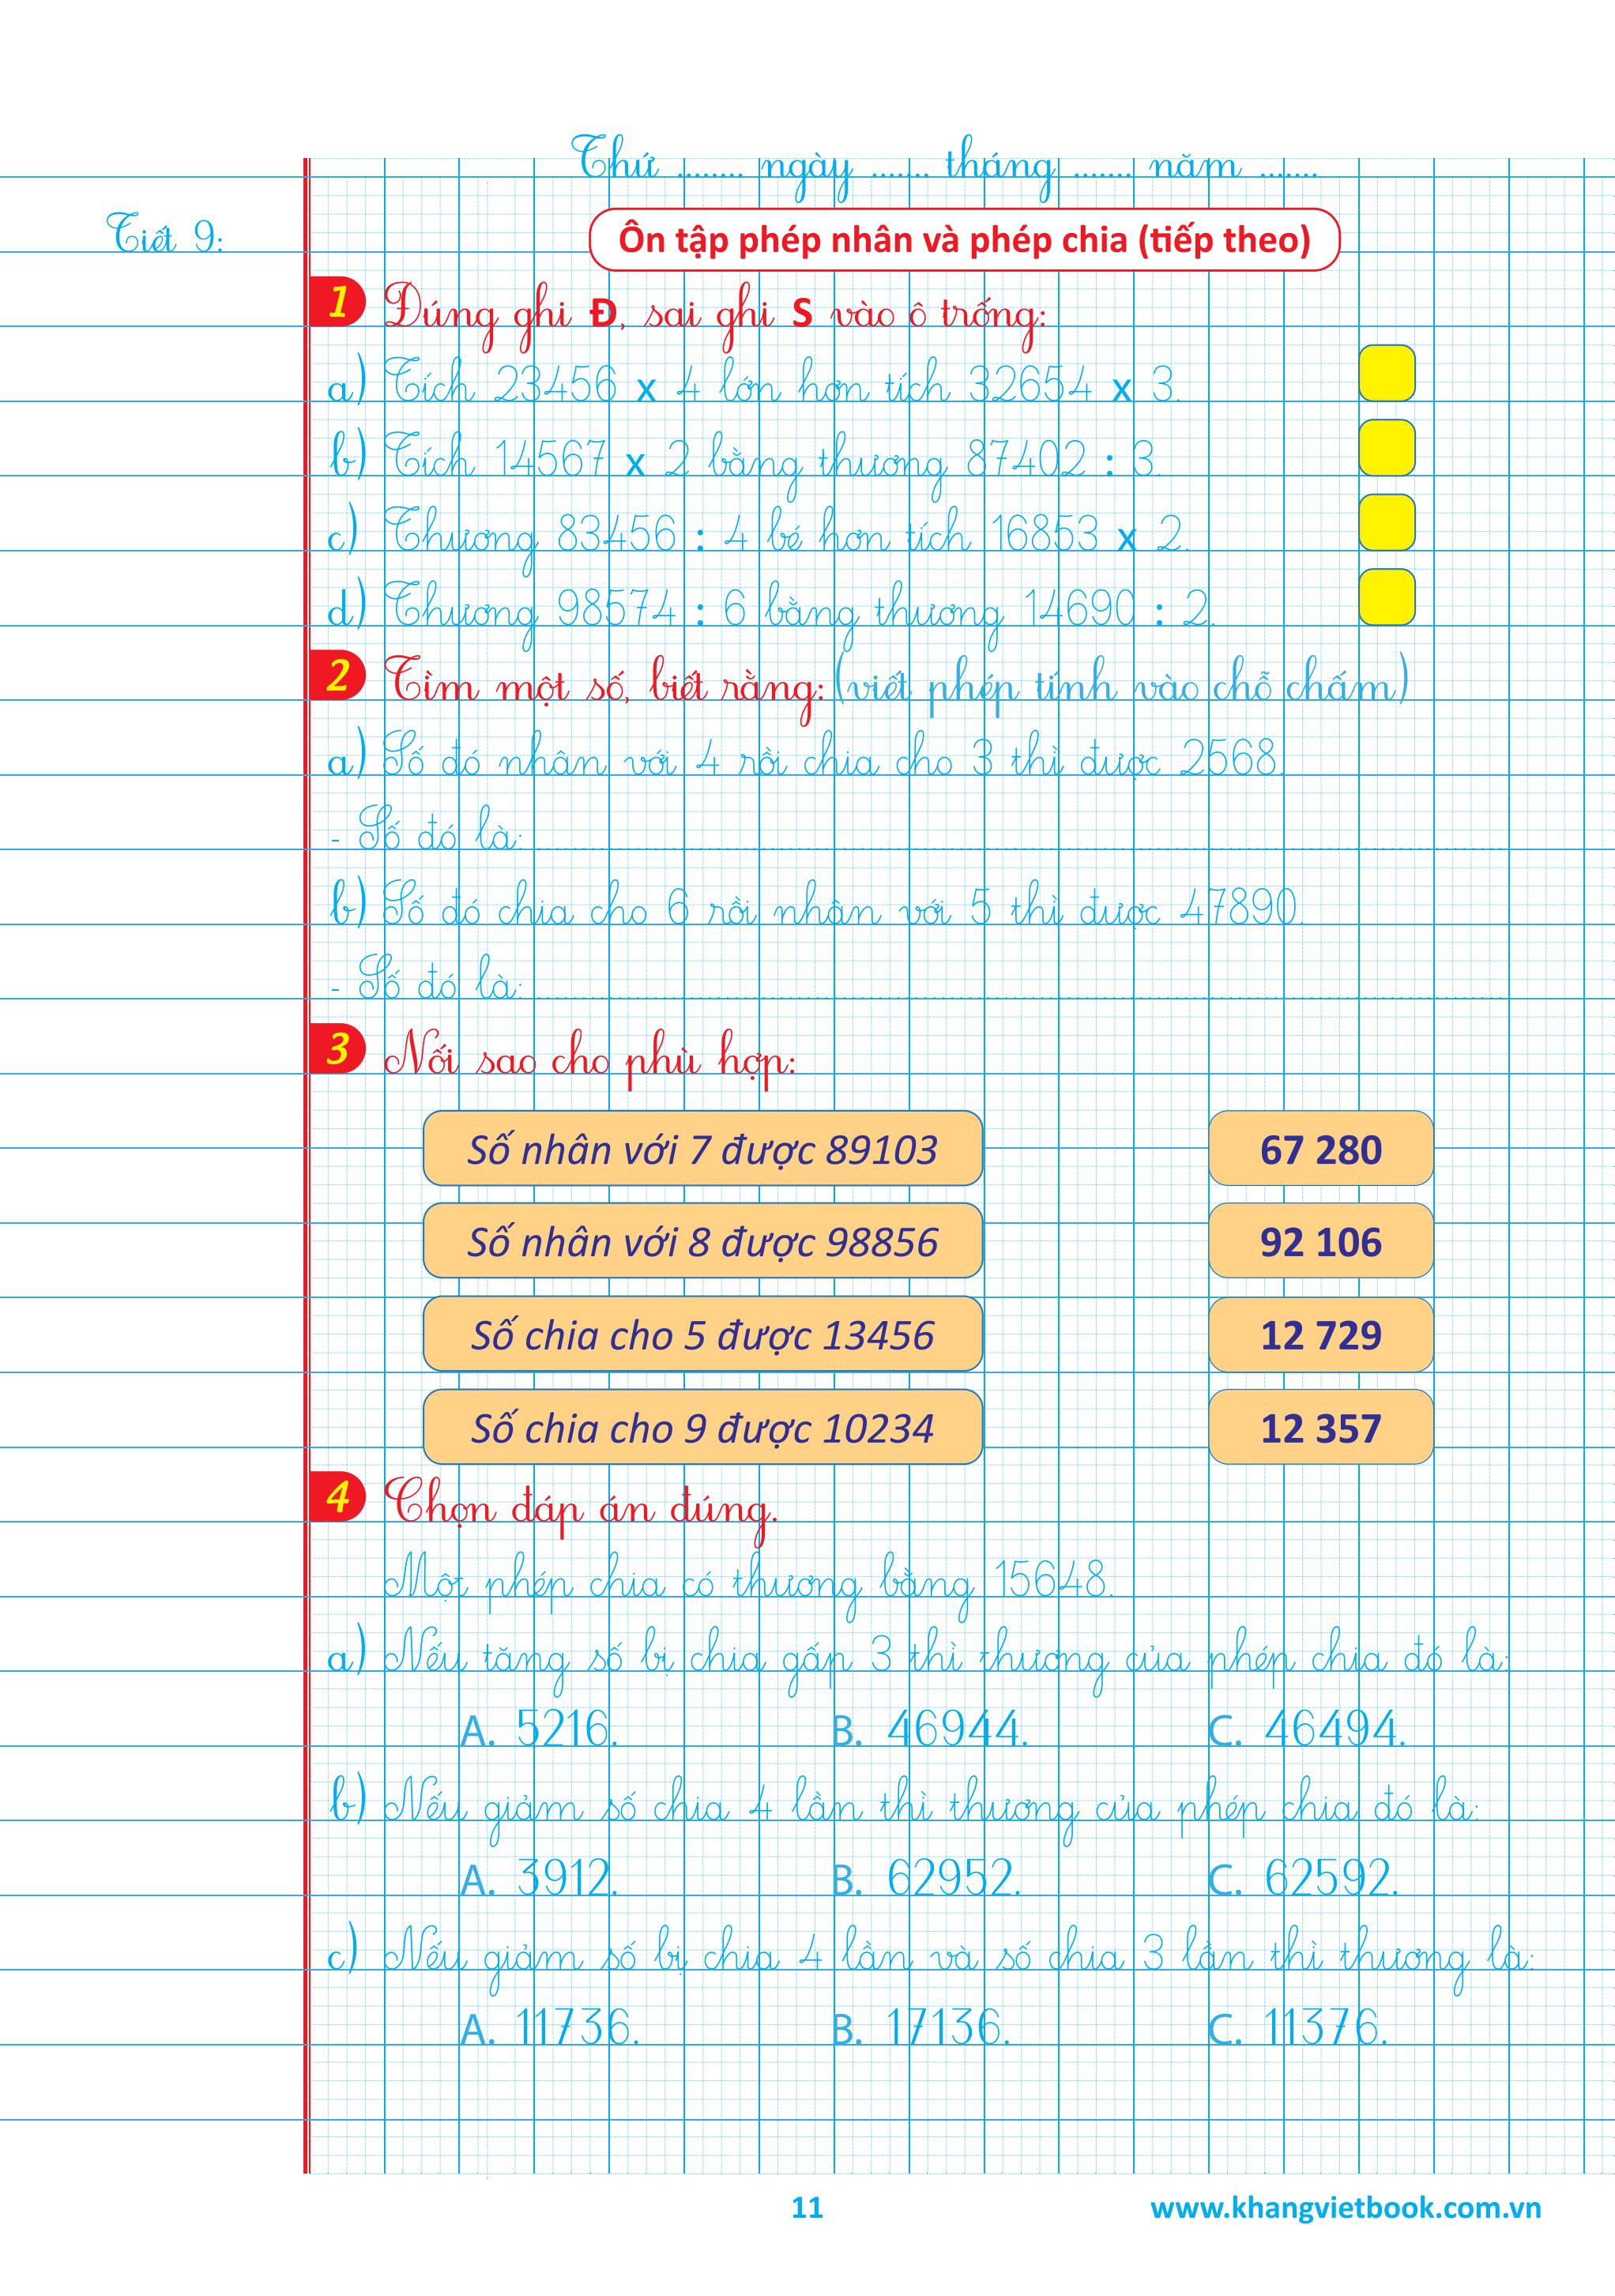 Thứ ........ ngày ....... tháng ....... năm .......
Tiết 9:
Ôn tập phép nhân và phép chia (tiếp theo)
1 Đúng ghi Đ, sai ghi S vào ô trống:
a) Tích 23456 x 4 lớn hơn tích 32654 x 3.
b) Tích 14567 x 2 bằng thương 87402 : 3.
c) Thương 83456 : 4 bé hơn tích 16853 x 2.
d) Thương 98574 : 6 bằng thương 14690 : 2.
2 Tìm một số, biết rằng: (viết phép tính vào chỗ chấm)
a) Số đó nhân với 4 rồi chia cho 3 thì được 2568.
- Số đó là: ........................................................................
b) Số đó chia cho 6 rồi nhân với 5 thì được 47890.
- Số đó là: ........................................................................
3 Nối sao cho phù hợp:
Số nhân với 7 được 89103 67 280
Số nhân với 8 được 98856 92 106
Số chia cho 5 được 13456 12 729
Số chia cho 9 được 10234 12 357
4 Chọn đáp án đúng.
Một phép chia có thương bằng 15648.
a) Nếu tăng số bị chia gấp 3 thì thương của phép chia đó là:
A. 5216. B. 46944. C. 46494.
b) Nếu giảm số chia 4 lần thì thương của phép chia đó là:
A. 3912. B. 62952. C. 62592.
c) Nếu giảm số bị chia 4 lần và số chia 3 lần thì thương là:
A. 11736. B. 17136. C. 11376.
11 www.khangvietbook.com.vn